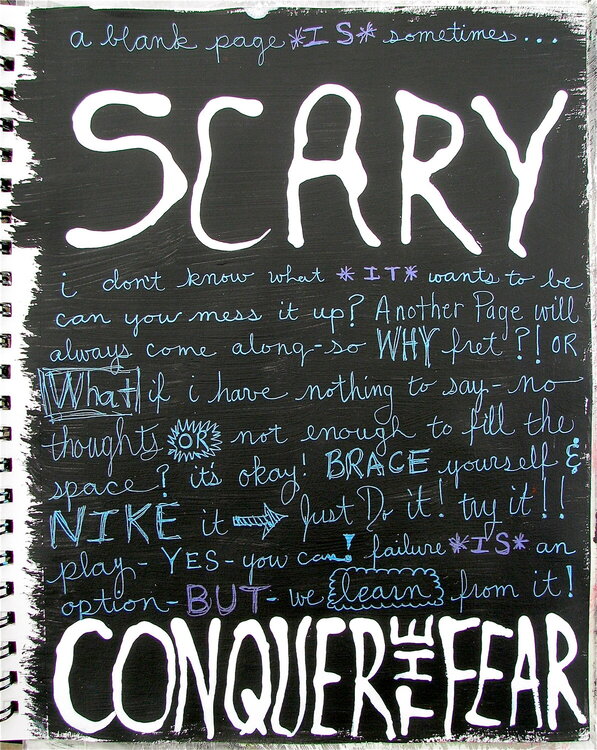 a blank page *IS* sometimes...
SCARY
i don't know what *IT* wants to be
can you mess it up? Another Page will
always come along-so WHY fret?! OR
What if i have nothing to say-no
thoughts OR not enough to fill the
space? it's okay! BRACE yourself &
NIKE it → Just Do it! try it!!
play-YES-you can! failure *IS* an
option-BUT-we learn from it!
CONQUER THE FEAR